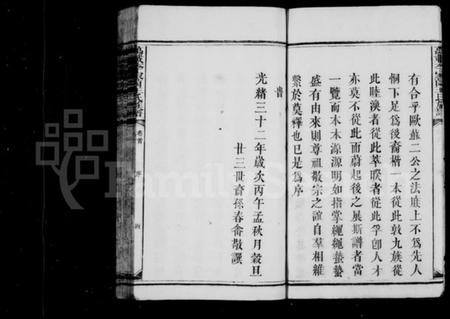 有合乎歐蘇二公之法庶上不爲先人
恫下足爲後裔楷一本從此敦九族從
此睦渙者從此萃睽者從此孚卽人才
亦莫不從此而蔚起後之展斯譜者當
一覽而木本源源明如指掌繩繩蟄蟄
盛有由來則尊祖敬宗之誼自羣相維
繫於莫禪也已是爲序
旹
光緒三十二年歲次丙午孟秋月穀旦
廿三世裔孫春畬敬譔
卷首
序
FamilySearch